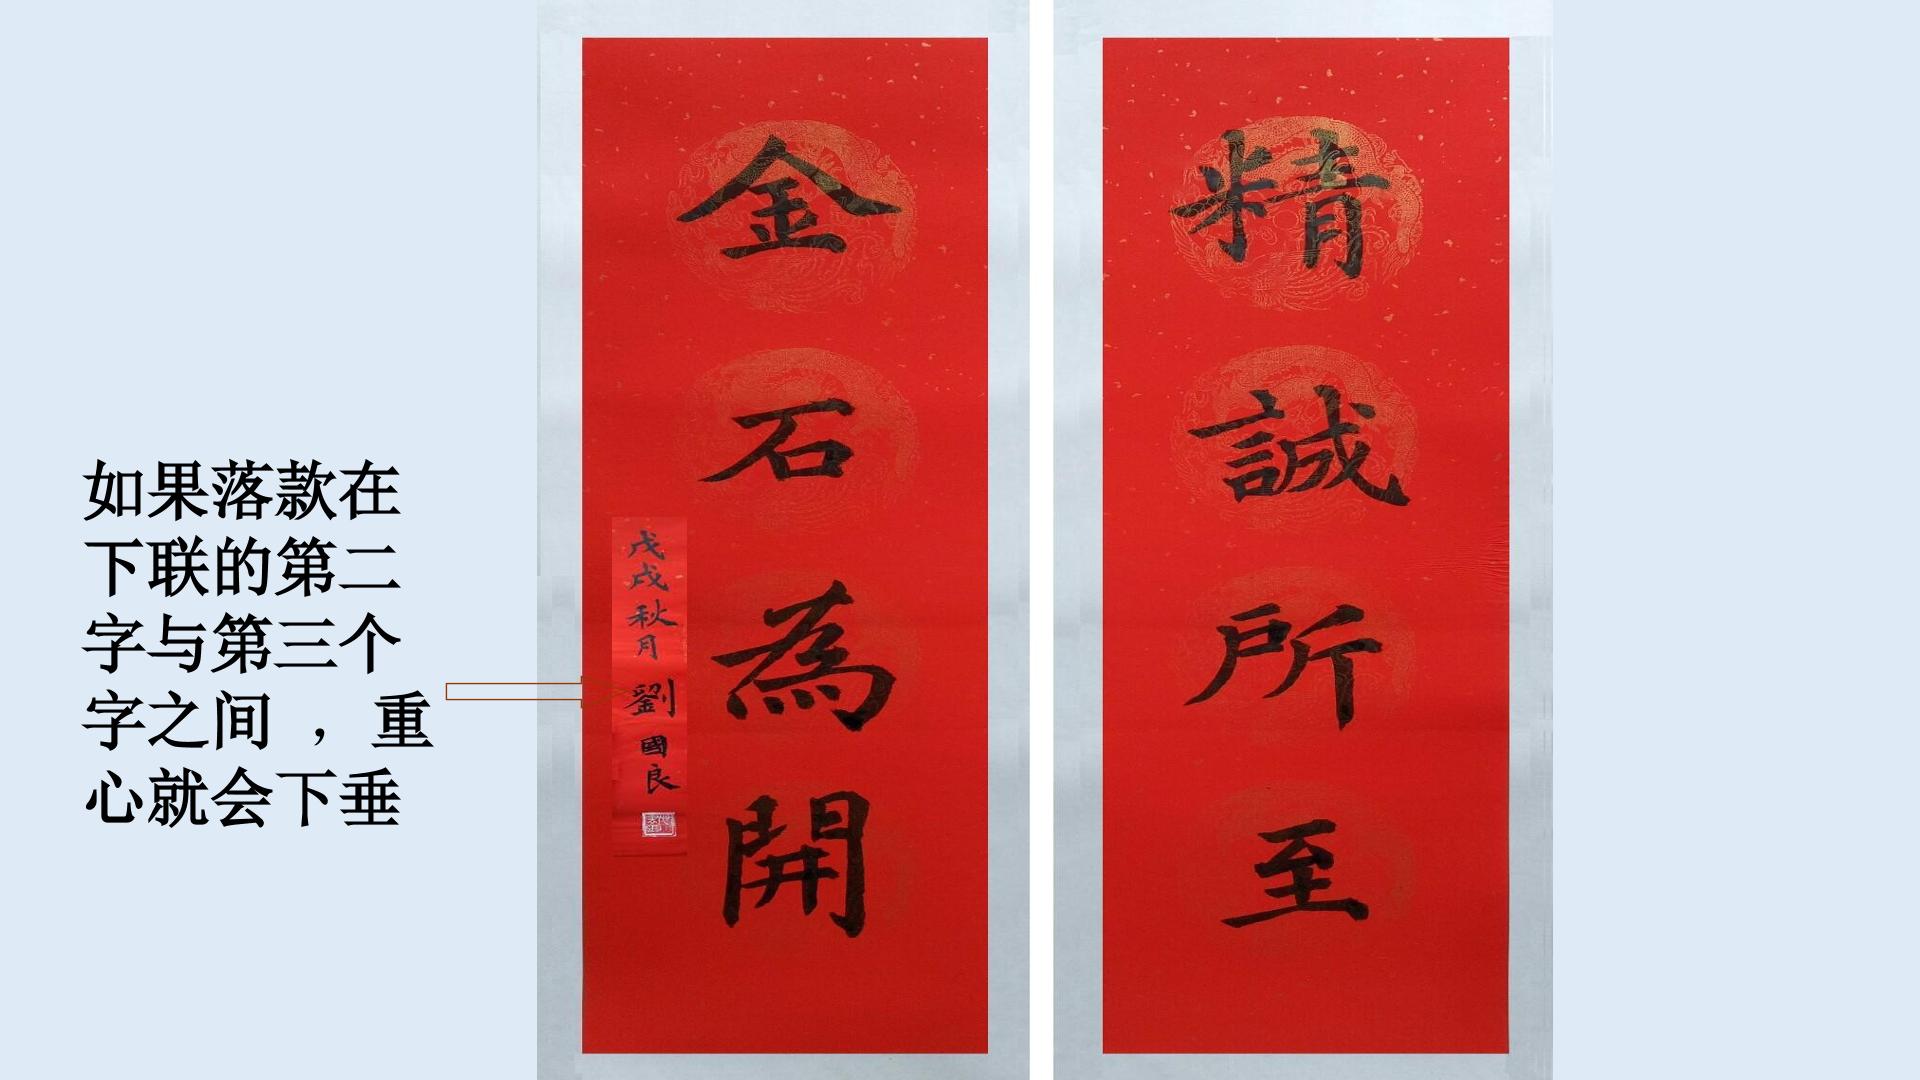 如果落款在
下联的第二
字与第三个
字之间 ，重
心就会下垂
精誠所至
金石為開
戊戌秋月 劉國良